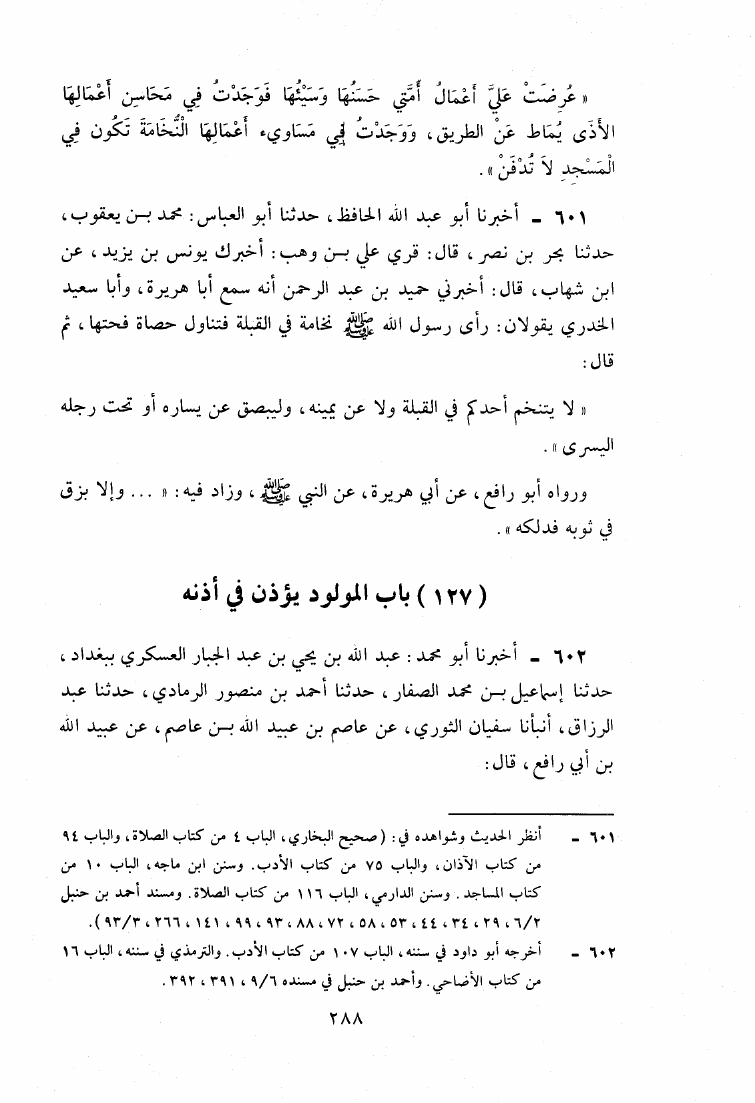 « عُرِضَتْ عَلَيَّ أَعْمَالُ أُمَّتِي حَسَنُهَا وَسَيِّئُهَا فَوَجَدْتُ فِي مَحَاسِنِ أَعْمَالِهَا
الأَذَى يُمَاطُ عَنْ الطريق، وَوَجَدْتُ فِي مَسَاوِيءِ أَعْمَالِهَا النُّخَامَةَ تَكُون فِي
الْمَسْجِدِ لاَ تُدْفَنُ ».
٦٠١ ـ أخبرنا أبو عبد الله الحافظ، حدثنا أبو العباس: محمد بن يعقوب،
حدثنا بحر بن نصر، قال: قري علي بن وهب: أخبرك يونس بن يزيد، عن
ابن شهاب، قال: أخبرني حميد بن عبد الرحمن أنه سمع أبا هريرة، وأبا سعيد
الخدري يقولان: رأى رسول الله ﷺ نخامة في القبلة فتناول حصاة فحتها، ثم
قال:
« لا يتنخم أحدكم في القبلة ولا عن يمينه، وليبصق عن يساره أو تحت رجله
اليسرى ».
ورواه أبو رافع، عن أبي هريرة، عن النبي ﷺ، وزاد فيه: « ... وإلا بزق
في ثوبه فدلكه ».
(١٢٧) باب المولود يؤذن في أذنه
٦٠٢ ـ أخبرنا أبو محمد: عبد الله بن يحي بن عبد الجبار العسكري ببغداد،
حدثنا إسماعيل بن محمد الصفار، حدثنا أحمد بن منصور الرمادي، حدثنا عبد
الرزاق، أنبأنا سفيان الثوري، عن عاصم بن عبيد الله بن عاصم، عن عبيد الله
بن أبي رافع، قال:
٦٠١ ـ أنظر الحديث وشواهده في: (صحيح البخاري، الباب ٤ من كتاب الصلاة، والباب ٩٤
من كتاب الآذان، والباب ٧٥ من كتاب الأدب. وسنن ابن ماجه، الباب ١٠ من
كتاب المساجد. وسنن الدارمي، الباب ١١٦ من كتاب الصلاة. ومسند أحمد بن حنبل
٦/٢، ٢٩، ٣٤، ٤٤، ٥٣، ٥٨، ٧٢، ٨٨، ٩٣، ٩٩، ١٤١، ٢٦٦، ٩٣/٣).
٦٠٢ ـ أخرجه أبو داود في سننه، الباب ١٠٧ من كتاب الأدب. والترمذي في سننه، الباب ١٦
من كتاب الأضاحي. وأحمد بن حنبل في مسنده ٩/٦، ٣٩١، ٣٩٢.
٢٨٨